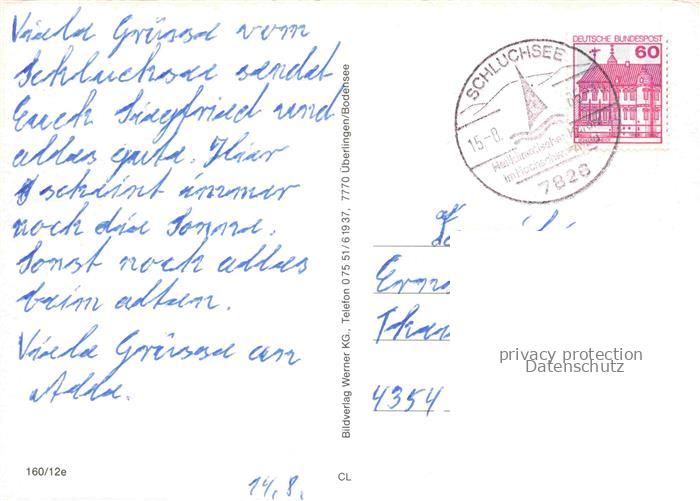 Viele Grüsse vom
Schluchsee sendet
Euch Siegfried und
alles gute. Hier
scheint immer
noch die Sonne.
Sonst noch alles
beim alten.
Viele Grüsse an
Alle.
14.8.
160/12e
CL
Bildverlag Werner KG., Telefon 0 75 51/6 19 37, 7770 Überlingen/Bodensee
SCHLUCHSEE
15.-8.
Heilklimatischer
im Hochschwarzwald
7826
DEUTSCHE BUNDESPOST
60
4354
privacy protection
Datenschutz